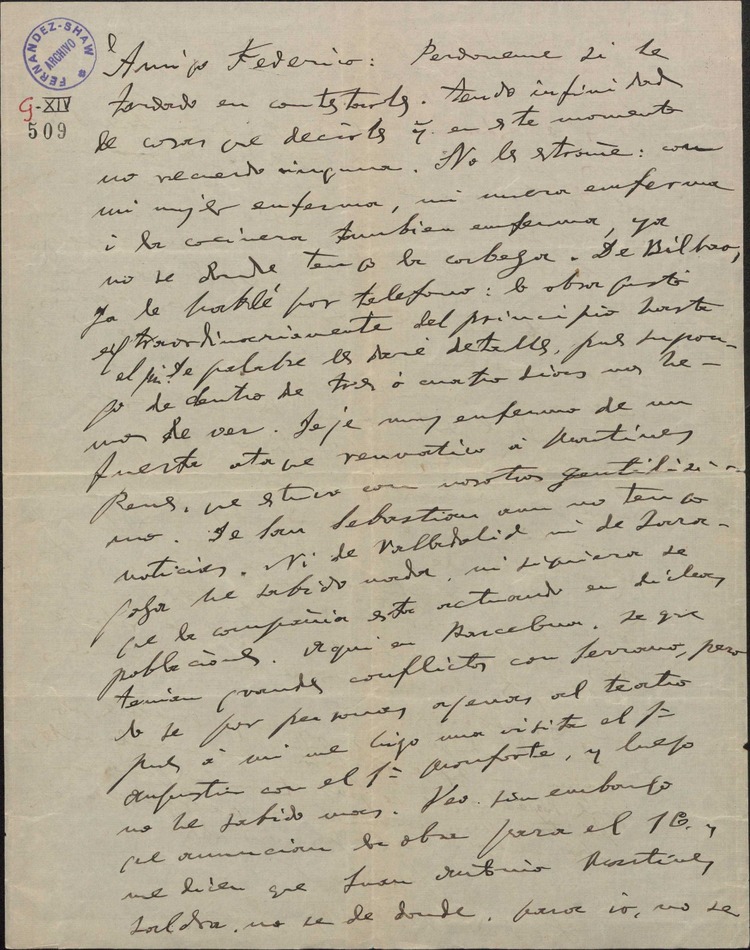 FERNANDEZ-SHAW
ARCHIVO
G-XIV
509
Amigo Federico: Perdoneme si he
tardado en contestarle. Tendo infinidad
de cosas que decirle y en este momento
no recuerdo ninguna. No le estrañe: con
mi mujer enferma, mi nuera enferma
i la cocinera tambien enferma, ya
no se donde tengo la cabeza. De Bilbao,
ya le hablé por telefono: la obra gustó
extraordinariamente del principio hasta
el fin. De palabra le daré detalles, pues supon-
go de dentro de tres ó cuatro dias nos he-
mos de ver. Deje muy enfermo de un
fuerte ataque reumatico á Martinez
Pene, que estuvo con nosotros gentilisi-
mo. De San Sebastian aun no tengo
noticias. Ni de Valladolid ni de Zarra-
goza he sabido nada, ni siquiera se
que la compañia esta actuando en dichas
poblaciones. Aqui en Barcelona, se que
tenian grandes conflictos con Serrano, pero
lo se por personas agenas al teatro
pues á mi me hizo una visita el Sr
Augustin con el Sr Monforte, y luego
no he sabido mas. Veo sin embargo
que anuncian la obra para el 16, y
me dicen que Juan Antonio Martinez
saldra, no se de donde, para io, no se